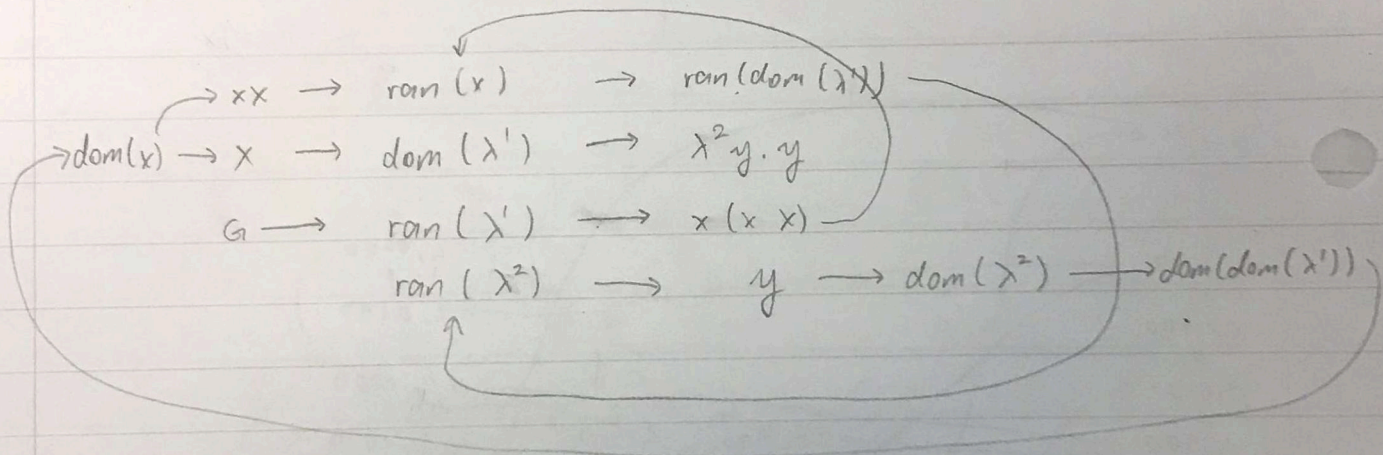 xx → ran (x) → ran(dom (λ'))
dom(x) → x → dom (λ') → λ² y. y
G → ran (λ') → x (x x)
ran (λ²) → y → dom (λ²) → dom(dom(λ'))